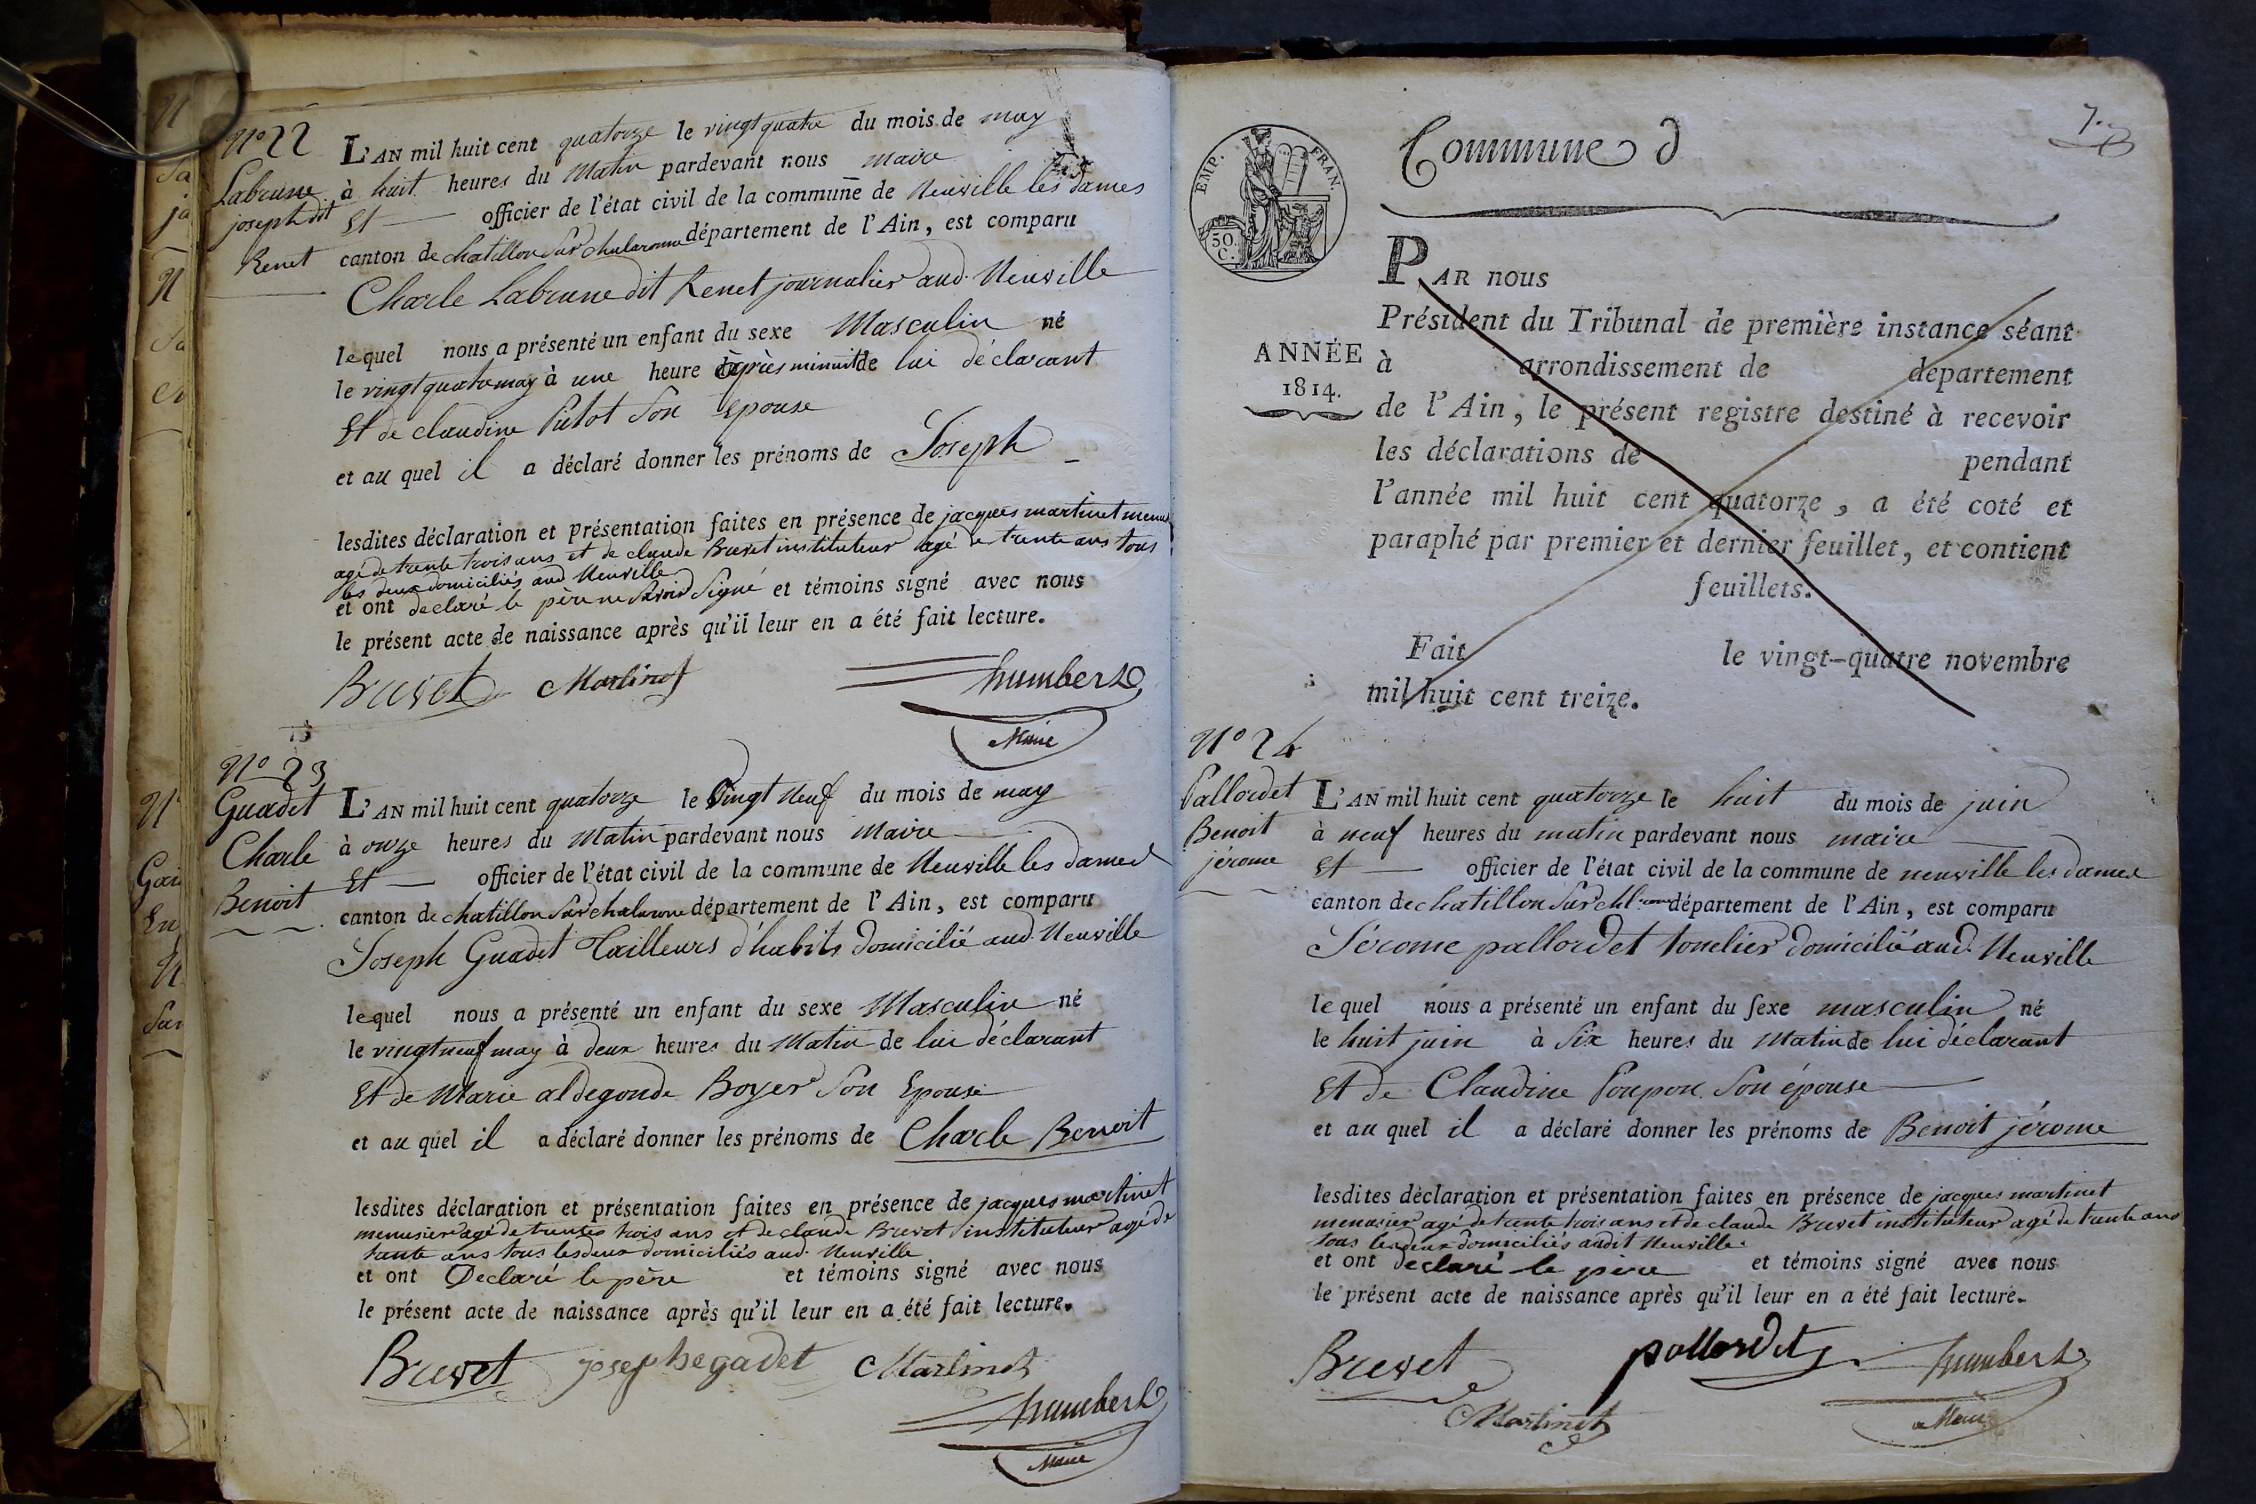 N° 22
Labrune
joseph dit
Renet
L'AN mil huit cent quatorze le vingt quatre du mois de may
à huit heures du Matin pardevant nous maire
Et officier de l'état civil de la commune de Neuville les dames
canton de chatillon sur chalaronne département de l'Ain, est comparu
Charle Labrune dit Renet journalier aud. Neuville
lequel nous a présenté un enfant du sexe Masculin né
le vingt quatre may à une heure après minuit de lui déclarant
Et de claudine Putot son Epouse
et au quel il a déclaré donner les prénoms de Joseph
lesdites déclaration et présentation faites en présence de jacques martinet menu
agé de trente trois ans et de claude Brevet instituteur agé de trente ans tous
les deux domiciliés aud Neuville
et ont declaré le père ne savoir signé et témoins signé avec nous
le présent acte de naissance après qu'il leur en a été fait lecture.
Brevet Martinet humbert
Maire
N° 23
Guadet
Charle
Benoit
L'AN mil huit cent quatorze le Vingt Neuf du mois de may
à onze heures du Matin pardevant nous Maire
Et officier de l'état civil de la commune de Neuville les dames
canton de chatillon sur chalaronne département de l'Ain, est comparu
Joseph Guadet Tailleurs d'habits domicilié aud. Neuville
lequel nous a présenté un enfant du sexe Masculin né
le vingt neuf may à deux heures du Matin de lui déclarant
Et de Marie aldegonde Boyer son Epouse
et au quel il a déclaré donner les prénoms de Charle Benoit
lesdites déclaration et présentation faites en présence de jacques martinet
menusier agé de trentes trois ans et de claude Brevet instituteur agé de
trante ans tous lesdeux domiciliés aud. Neuville
et ont Declaré le père et témoins signé avec nous
le présent acte de naissance après qu'il leur en a été fait lecture.
Brevet josephe gadet Martinet
humbert
Maire
7.
Commune d
EMP. FRAN.
50.
C.
ANNÉE
1814.
PAR nous
Président du Tribunal de première instance séant
à arrondissement de département
de l'Ain, le présent registre destiné à recevoir
les déclarations de pendant
l'année mil huit cent quatorze, a été coté et
paraphé par premier et dernier feuillet, et contient
feuillets.
Fait le vingt-quatre novembre
mil huit cent treize.
N° 24
Pallordet
Benoit
jérome
L'AN mil huit cent quatorze le huit du mois de juin
à neuf heures du matin pardevant nous maire
Et officier de l'état civil de la commune de neuville les dames
canton de chatillon sur département de l'Ain, est comparu
Jérome pallordet tonelier domicilié aud. Neuville
lequel nous a présenté un enfant du sexe masculin né
le huit juin à Six heures du Matin de lui déclarant
Et de Claudine Poupon son épouse
et au quel il a déclaré donner les prénoms de Benoit jérome
lesdites déclaration et présentation faites en présence de jacques martinet
menusier agé de trente trois ans et de claude Brevet instituteur agé de trante ans
tous les deux domiciliés audit Neuville.
et ont declaré le père et témoins signé avec nous
le présent acte de naissance après qu'il leur en a été fait lecture.
Brevet pallordet humbert
Martinet Maire